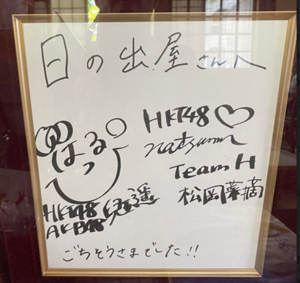 日の出屋さんへ
HKT48♡
はるっ
natsumi
Team H
HKT48
松岡菜摘
AKB48 兒玉遥
ごちそうさまでした!!